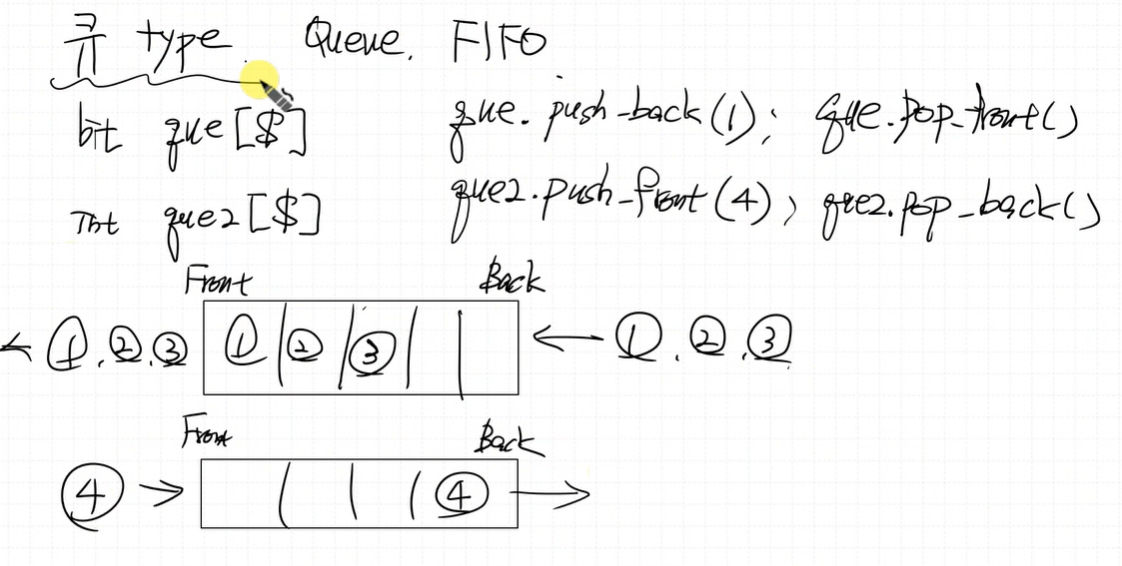 큐 type. Queue. FIFO
bit que[$] que.push_back(1); que.pop_front()
Int que2[$] que2.push_front(4); que2.pop_back()
Front Back
← ①.②.③ ①|②|③| | ← ①.②.③
Front Back
④ → | | |④ →